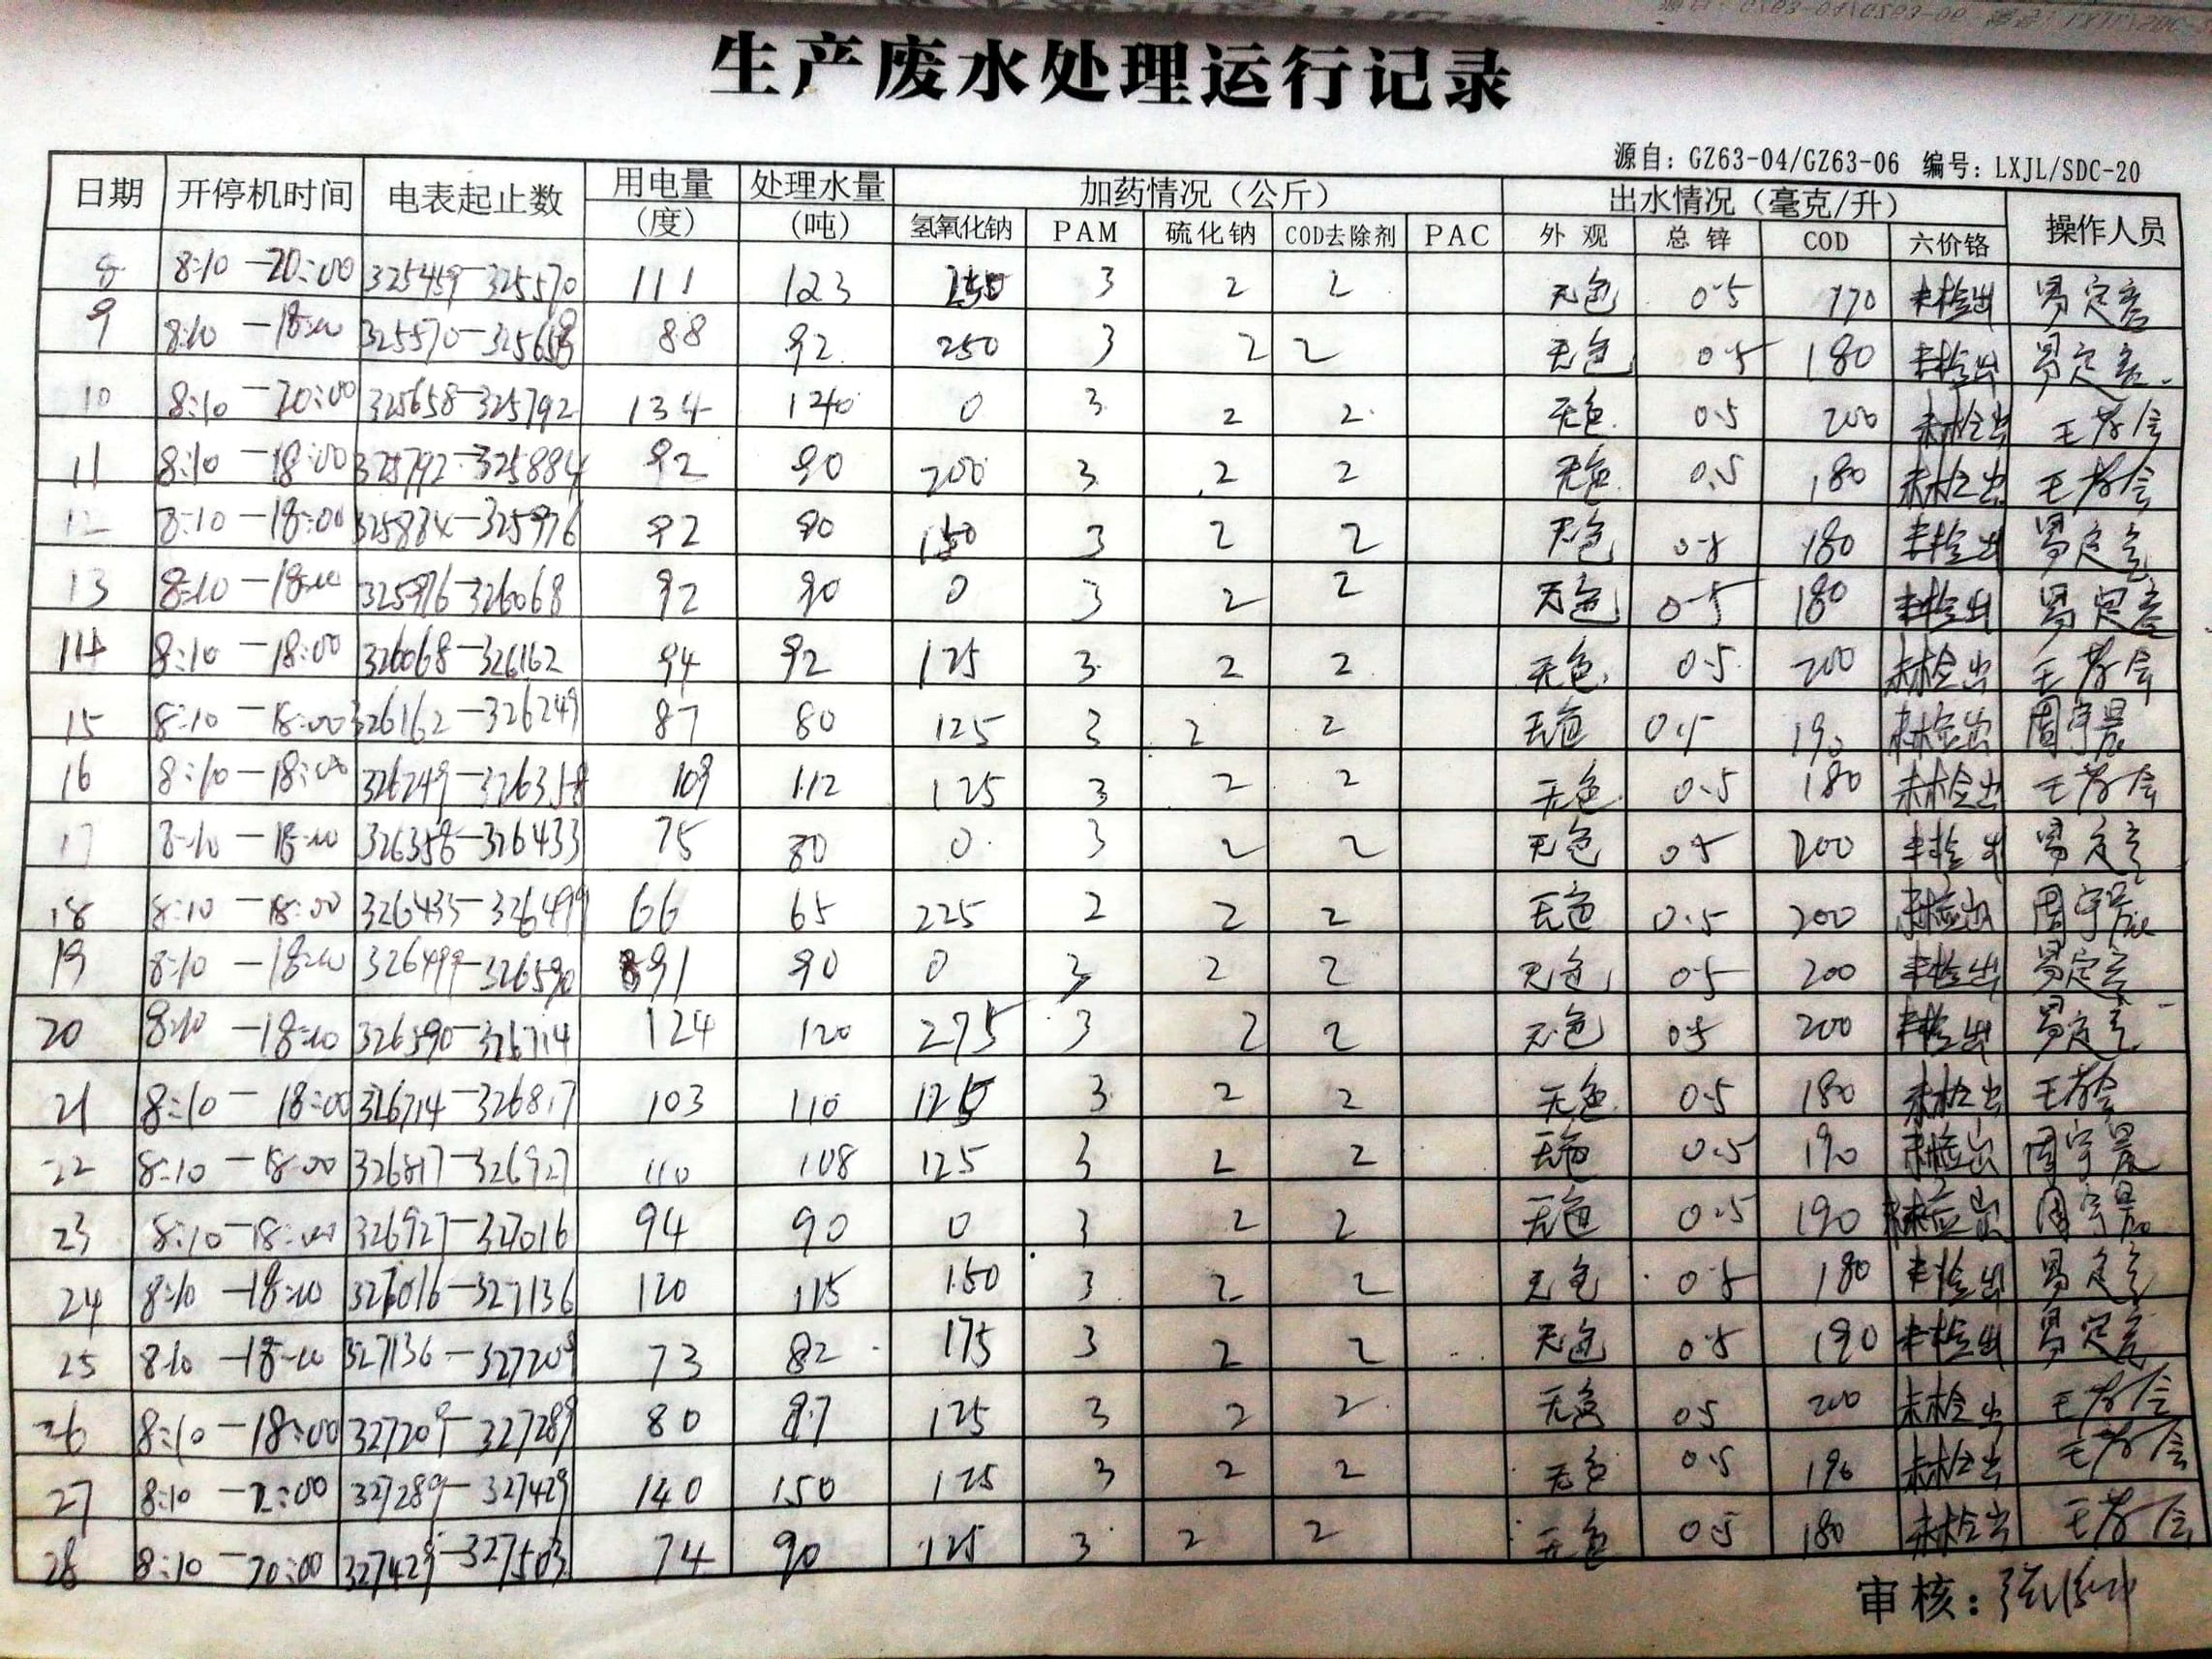 生产废水处理运行记录
源自：GZ63-04/GZ63-06 编号：LXJL/SDC-20
日期 开停机时间 电表起止数 用电量（度） 处理水量（吨） 加药情况（公斤） 出水情况（毫克/升） 操作人员
氢氧化钠 PAM 硫化钠 COD去除剂 PAC 外观 总锌 COD 六价铬
8 8:10-20:00 325459-325570 111 123 250 3 2 2 无色 0.5 170 未检出
9 8:10-18:00 325570-325658 88 92 250 3 2 2 无色 0.5 180 未检出
10 8:10-20:00 325658-325792 134 120 0 3 2 2 无色 0.5 200 未检出
11 8:10-18:00 325792-325884 92 90 200 3 2 2 无色 0.5 180 未检出
12 8:10-18:00 325884-325976 92 90 150 3 2 2 无色 0.5 180 未检出
13 8:10-18:00 325976-326068 92 90 0 3 2 2 无色 0.5 180 未检出
14 8:10-18:00 326068-326162 94 92 125 3 2 2 无色 0.5 200 未检出
15 8:10-18:00 326162-326249 87 80 125 3 2 2 无色 0.5 190 未检出 周宇晨
16 8:10-18:00 326249-326358 109 112 125 3 2 2 无色 0.5 180 未检出
17 8:10-18:00 326358-326433 75 80 0 3 2 2 无色 0.5 200 未检出
18 8:10-18:00 326433-326499 66 65 225 2 2 2 无色 0.5 200 未检出 周宇晨
19 8:10-18:00 326499-326590 91 90 0 3 2 2 无色 0.5 200 未检出
20 8:10-18:00 326590-326714 124 120 275 3 2 2 无色 0.5 200 未检出
21 8:10-18:00 326714-326817 103 110 125 3 2 2 无色 0.5 180 未检出
22 8:10-18:00 326817-326927 110 108 125 3 2 2 无色 0.5 190 未检出 周宇晨
23 8:10-18:00 326927-327016 94 90 0 3 2 2 无色 0.5 190 未检出 周宇晨
24 8:10-18:00 327016-327136 120 115 150 3 2 2 无色 0.5 180 未检出
25 8:10-18:00 327136-327209 73 82 175 3 2 2 无色 0.5 190 未检出
26 8:10-18:00 327209-327289 80 87 125 3 2 2 无色 0.5 200 未检出
27 8:10- 327289-327429 140 150 125 3 2 2 无色 0.5 190 未检出
28 8:10-20:00 327429-327503 74 90 125 3 2 2 无色 0.5 180 未检出
审核：